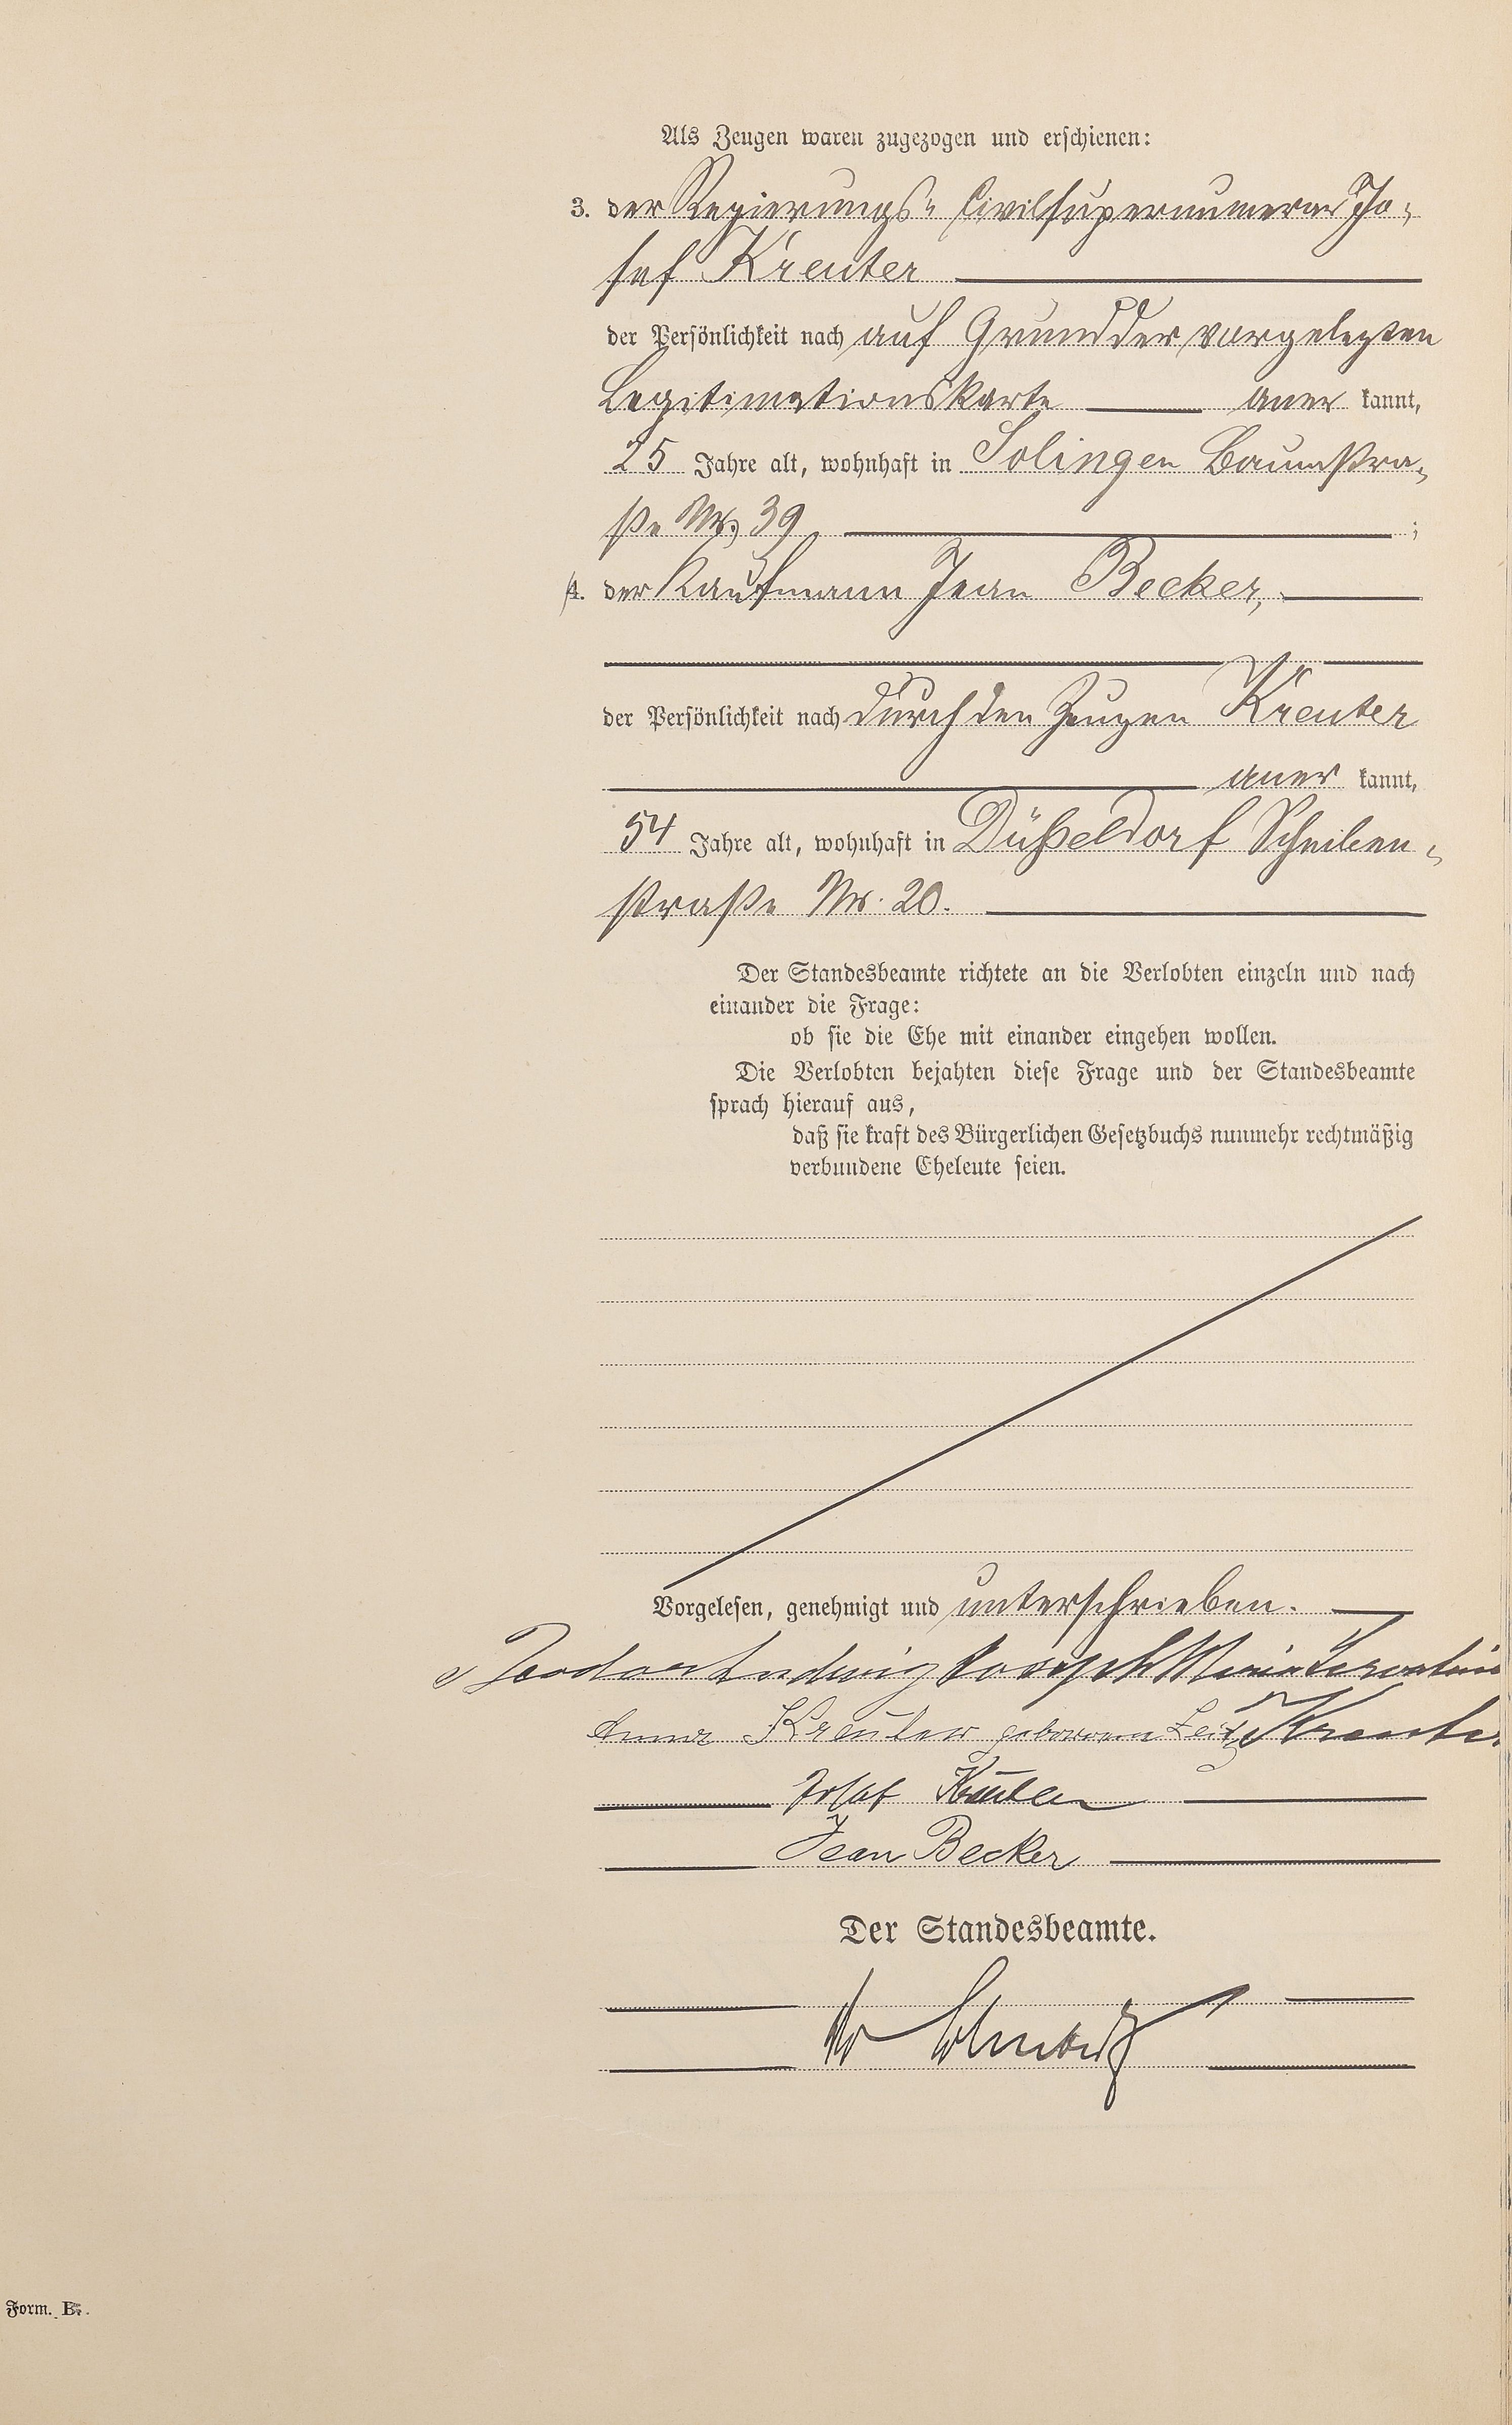 Als Zeugen waren zugezogen und erschienen:
3. der Regierungs- Civilsupernumerar Jo-
sef Kreuter
der Persönlichkeit nach auf Grund der vorgelegten
Legitimationskarte aner kannt,
25 Jahre alt, wohnhaft in Solingen Baumstra-
ße Nr. 39 ;
4. der Kaufmann Jean Becker,
der Persönlichkeit nach durch den Zeugen Kreuter
aner kannt,
54 Jahre alt, wohnhaft in Düsseldorf Scheiben-
straße Nr. 20.
Der Standesbeamte richtete an die Verlobten einzeln und nach
einander die Frage:
ob sie die Ehe mit einander eingehen wollen.
Die Verlobten bejahten diese Frage und der Standesbeamte
sprach hierauf aus,
daß sie kraft des Bürgerlichen Gesetzbuchs nunmehr rechtmäßig
verbundene Eheleute seien.
Vorgelesen, genehmigt und unterschrieben.
Theodor Ludwig Joseph Maria Servatius
Anna Kreuter geborene Kreuter
Josef Kreuter
Jean Becker
Der Standesbeamte.
Form. B.